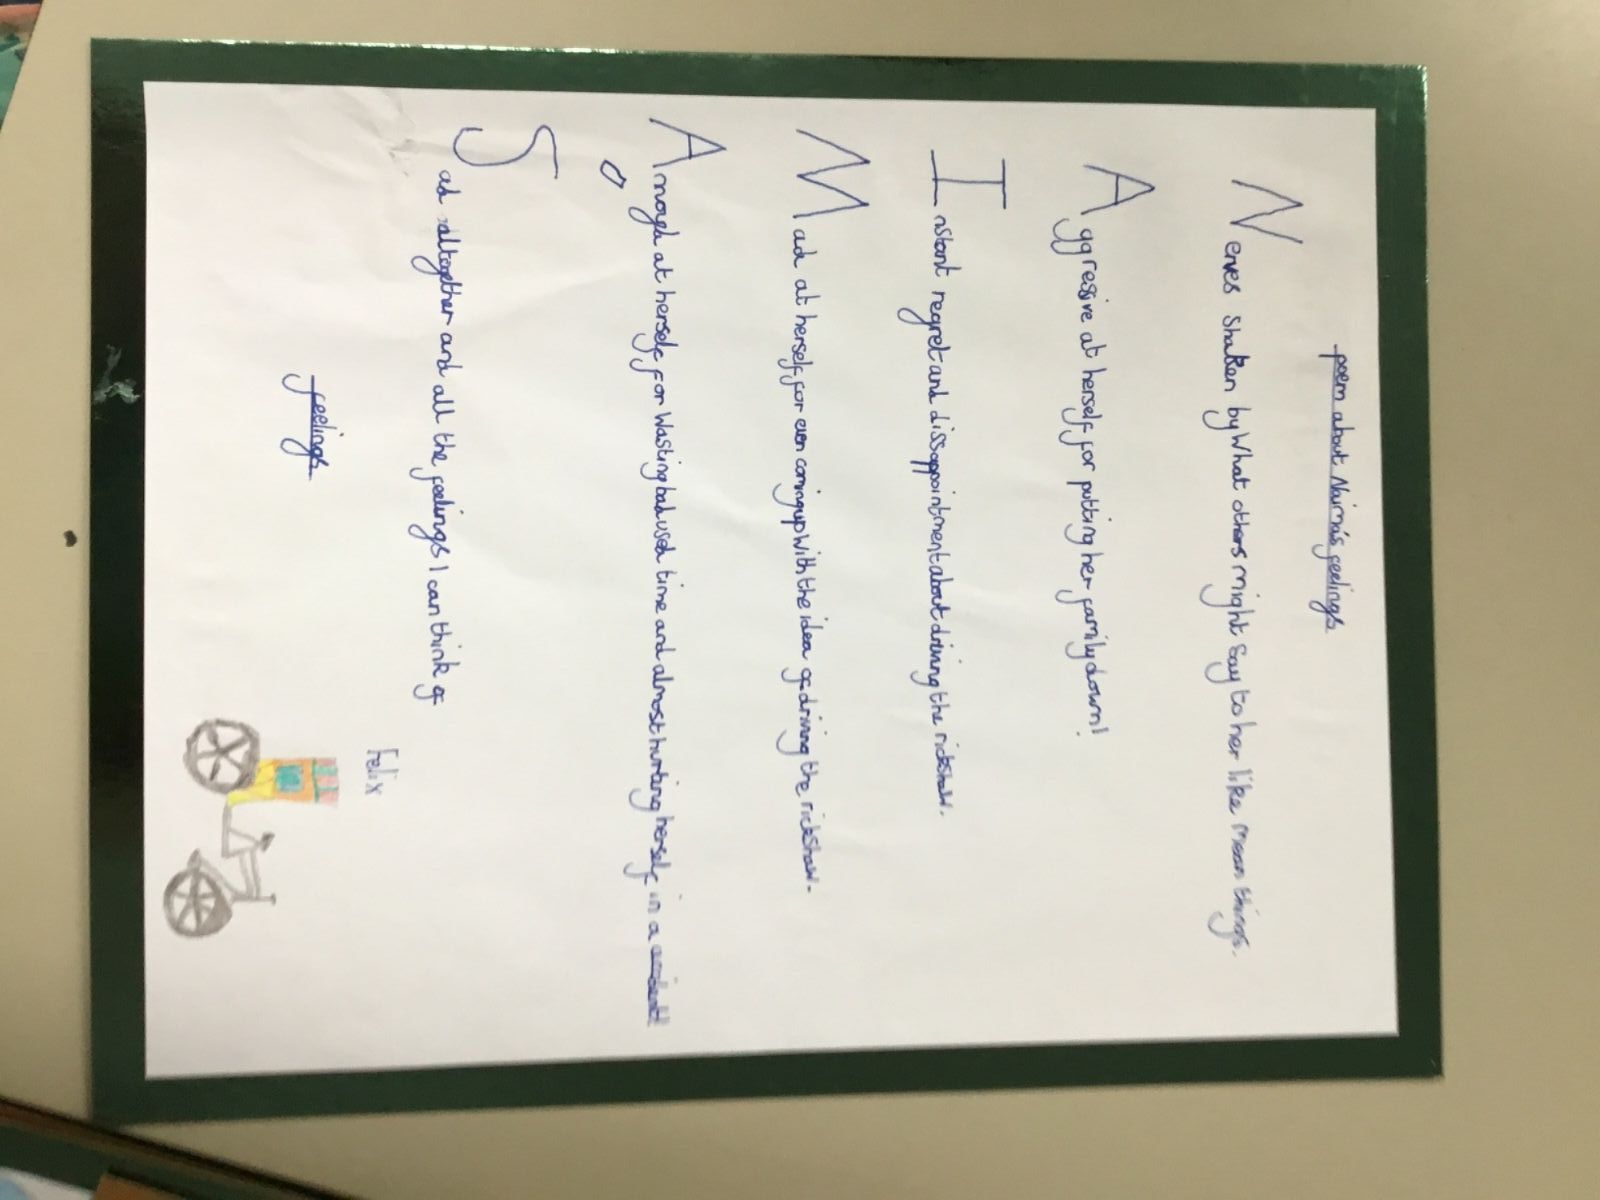 poem about Naima's feelings
Nerves Shaken by What others might say to her like mean things.
Aggresive at herself for putting her family down!
Instant regret and dissappointment about driving the rickshaw.
Mad at herself for even coming up with the idea of driving the rickshaw.
Anoyed at herself for Wasting bad used time and almost hurting herself in a accident!
'
Sad alltogether and all the feelings I can think of
feelings
Felix